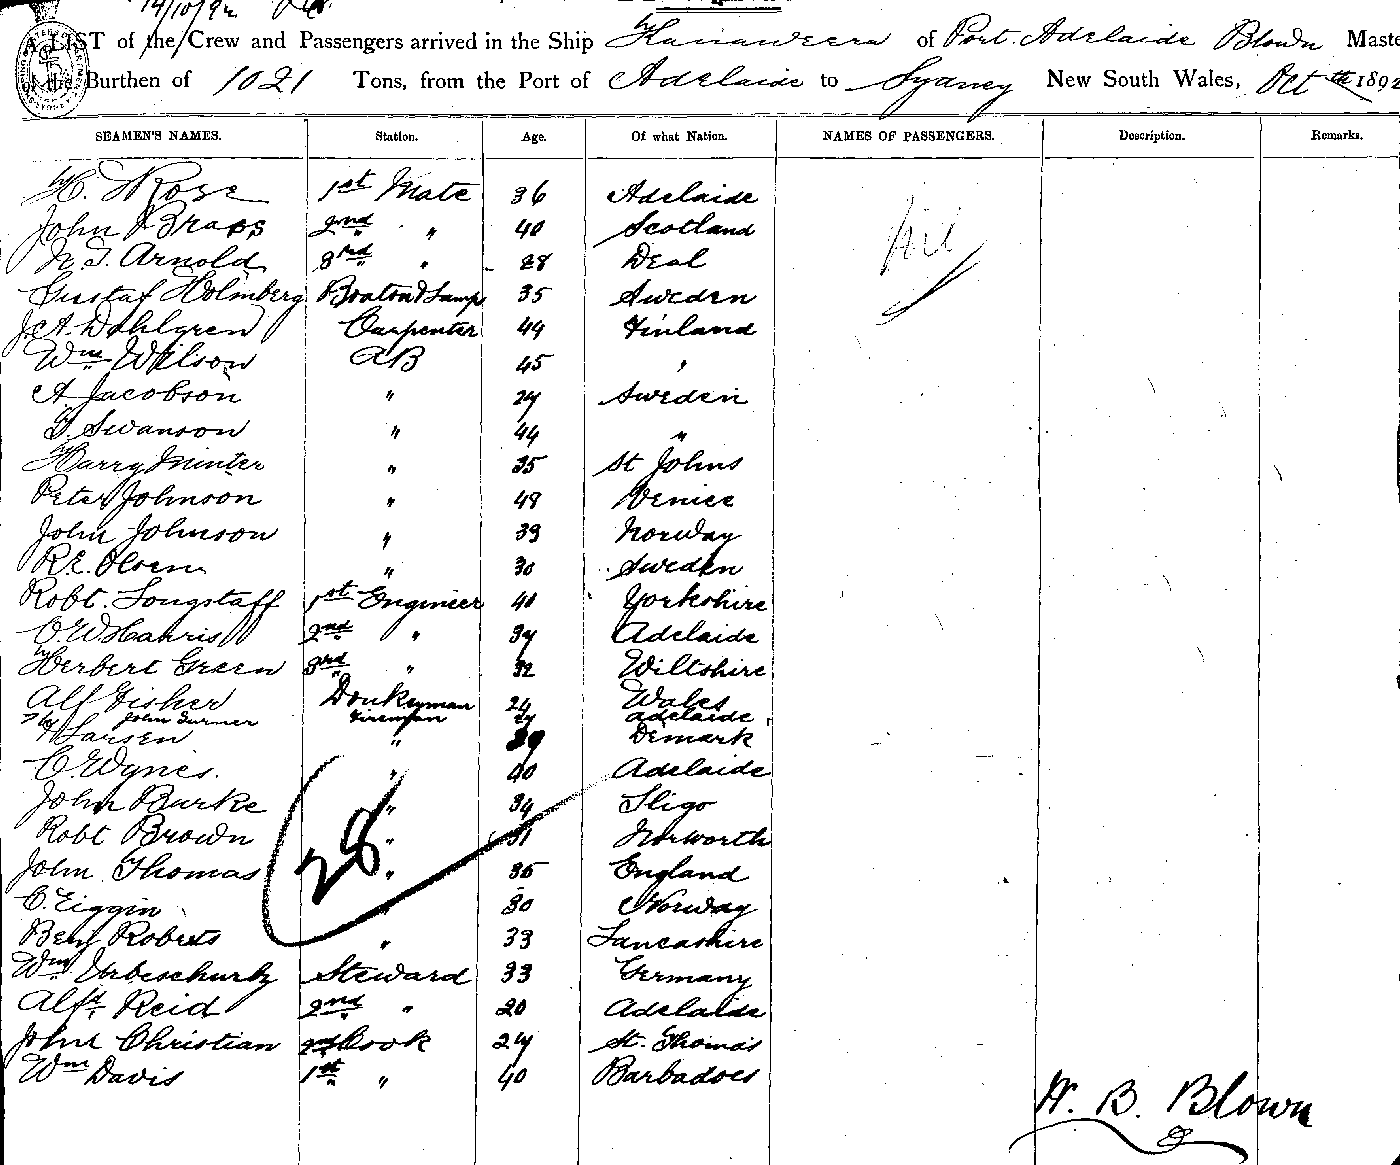 14/10/92
A LIST of the Crew and Passengers arrived in the Ship Kanaweera of Port Adelaide Blown Maste
of the Burthen of 1021 Tons, from the Port of Adelaide to Sydney New South Wales, Oct th 1892
SEAMEN'S NAMES. Station. Age. Of what Nation. NAMES OF PASSENGERS. Description. Remarks.
H. Rose 1st Mate 36 Adelaide
Nil
John Brass 2nd " 40 Scotland
N. T. Arnold 3rd " 28 Deal
Gustaf Holmberg Boatsn & Lamp 35 Sweden
J. A. Dahlgren Carpenter 44 Finland
Wm Wilson AB 45 "
A Jacobson " 24 Sweden
G. Swanson " 44 "
Harry Minter " 35 St Johns
Peter Johnson " 48 Venice
John Johnson " 39 Norway
R. E. Olsen " 30 Sweden
Robt. Longstaff 1st Engineer 40 Yorkshire
C. W Harris 2nd " 34 Adelaide
Herbert Green 3rd " 32 Wiltshire
Alf Fisher Donkeyman 24 Wales
John Turner Fireman adelaide
Larsen " 39 Demark
C. Wynes. " 40 Adelaide
John Burke " 34 Sligo
Robt Brown " 31 Norworth
John Thomas " 35 England
C. Eiggin " 30 Norway
28
Benj Roberts " 33 Lancashire
Wm Steward 33 Germany
Alfd Reid 2nd " 20 Adelaide
John Christian 2nd Cook 24 St. Thomas
Wm Davis 1st " 40 Barbadoes
W. B. Blown